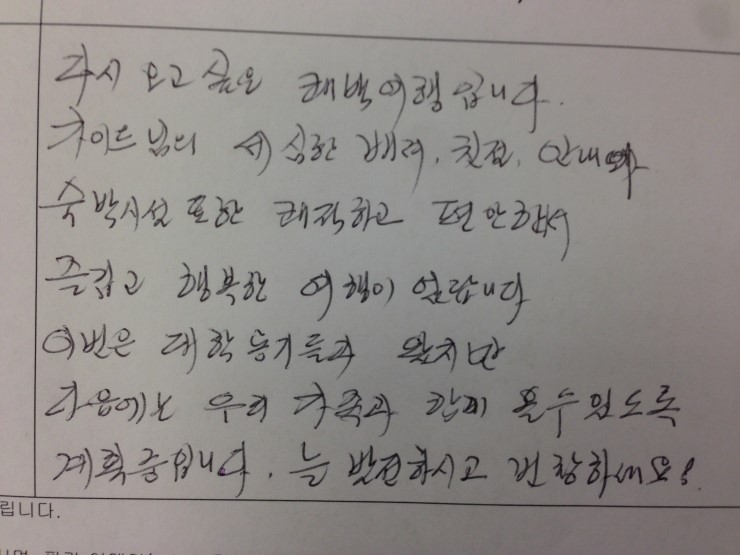 다시 오고 싶은 태백여행입니다.
가이드님의 세심한 배려, 친절, 안내와
숙박시설 또한 쾌적하고 편안해서
즐겁고 행복한 여행이 였답니다
이번은 대학 동기들과 왔지만
다음에는 우리 가족과 함께 올수 있도록
계획중입니다. 늘 발전하시고 번창하세요!
립니다.